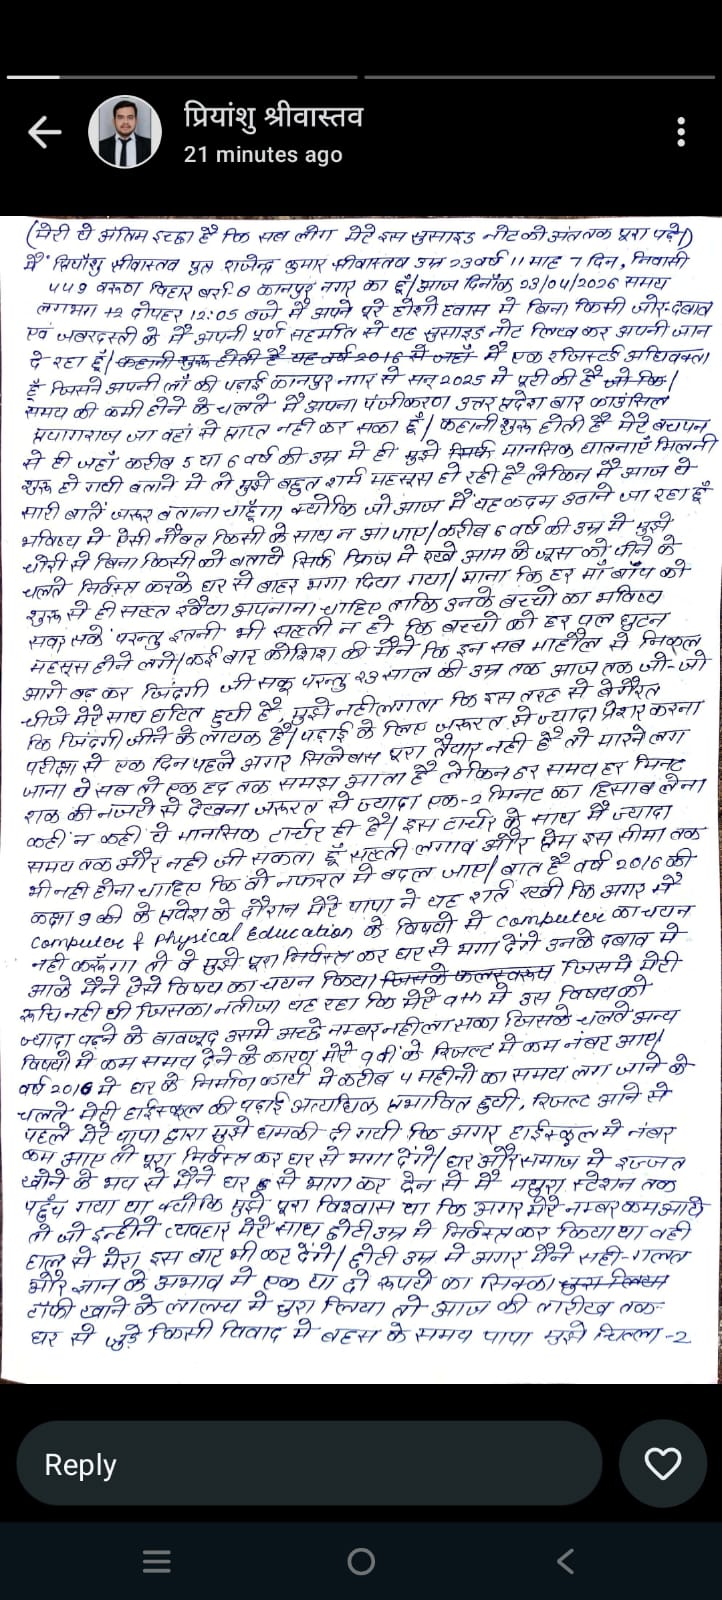 प्रियांशु श्रीवास्तव
21 minutes ago
(मेरी ये अंतिम इच्छा है कि सब लोग मेरे इस सुसाइड नोट को अंत तक पूरा पढ़े।)
मैं प्रियांशु श्रीवास्तव पुत्र राजेन्द्र कुमार श्रीवास्तव उम्र 23 वर्ष 11 माह 7 दिन, निवासी
449 वरूण विहार बर्रा-8 कानपुर नगर का हूँ। आज दिनाँक 23/04/2026 समय
लगभग दोपहर 12:05 बजे मैं अपने पूरे होशो हवास में बिना किसी जोर-दबाव
एवं जबरदस्ती के मैं अपनी पूर्ण सहमति से यह सुसाइड नोट लिख कर अपनी जान
दे रहा हूँ। कहानी शुरू होती है यह वर्ष 2016 से जहाँ मैं एक रजिस्टर्ड अधिवक्ता
हूँ जिसने अपनी लॉ की पढ़ाई कानपुर नगर से सन् 2025 में पूरी की है जो कि।
समय की कमी होने के चलते मैं अपना पंजीकरण उत्तर प्रदेश बार काउंसिल
प्रयागराज जा वहां से प्राप्त नहीं कर सका हूँ। कहानी शुरू होती है मेरे बचपन
से ही जहाँ करीब 5 या 6 वर्ष की उम्र में ही मुझे सिर्फ मानसिक यातनाएँ मिलनी
शुरू हो गयी बताने में तो मुझे बहुत शर्म महसूस हो रही है लेकिन मैं आज ये
सारी बातें जरूर बताना चाहूँगा, क्योंकि जो आज मैं यह कदम उठाने जा रहा हूँ
भविष्य में ऐसी नौबत किसी के साथ न आ पाए। करीब 6 वर्ष की उम्र में मुझे
चोरी से बिना किसी को बताये सिर्फ फ्रिज में रखे आम के जूस को पीने के
चलते निर्वस्त्र करके घर से बाहर भगा दिया गया। माना कि हर माँ बाँप को
शुरू से ही सख्त रवैया अपनाना चाहिए ताकि उनके बच्चों का भविष्य
सवर सके परन्तु इतनी भी सख्ती न हो कि बच्चों को हर पल घुटन
महसूस होने लगे। कई बार कोशिश की मैंने कि इन सब माहौल से निकल
आगे बढ़ कर जिंदगी जी सकू परन्तु 23 साल की उम्र तक आज तक जो-जो
चीजे मेरे साथ घटित हुयी है, मुझे नही लगता कि इस तरह से बेगैरत
कि जिंदगी जीने के लायक है। पढ़ाई के लिए जरूरत से ज्यादा प्रेशर करना
परीक्षा से एक दिन पहले अगर सिलेबस पूरा तैयार नही है तो मारने लग
जाना ये सब तो एक हद तक समझ आता है लेकिन हर समय हर मिनट
शक की नजरो से देखना जरूरत से ज्यादा एक-2 मिनट का हिसाब लेना
कहीं न कही ये मानसिक टार्चर ही है। इस टार्चर के साथ मैं ज्यादा
समय तक और नही जी सकता हूँ सख्ती लगाव और प्रेम इस सीमा तक
भी नही होना चाहिए कि वो नफरत में बदल जाए। बात है वर्ष 2016 की
कक्षा 9 की के प्रवेश के दौरान मेरे पापा ने यह शर्त रखी कि अगर मैं
computer & Physical Education के विषयो में computer का चयन
नही करूँगा तो वे मुझे पूरा निर्वस्त्र कर घर से भगा देंगे उनके दबाव मे
आके मैंने ऐसे विषय का चयन किया। जिसके फलस्वरूप जिसमे मेरी
रूचि नही थी जिसका नतीजा यह रहा कि मेरे 9th मे उस विषय को
ज्यादा पढ़ने के बावजूद उसमे अच्छे नम्बर नही ला सका जिसके चलते अन्य
विषयो मे कम समय देने के कारण मेरे 9वीं के रिजल्ट मे कम नंबर आए।
वर्ष 2016 मे घर के निर्माण कार्य मे करीब 4 महीनो का समय लग जाने के
चलते मेरी हाईस्कूल की पढ़ाई अत्यधिक प्रभावित हुयी, रिजल्ट आने से
पहले मेरे पापा द्वारा मुझे धमकी दी गयी कि अगर हाईस्कूल मे नंबर
कम आए तो पूरा निर्वस्त्र कर घर से भगा देंगे। घर और समाज मे इज्जत
खोने के भय से मैंने घर से भाग कर ट्रेन से मैं मथुरा स्टेशन तक
पहुँच गया था क्योकि मुझे पूरा विश्वास था कि अगर मेरे नम्बर कम आये
तो जो इन्होने व्यवहार मेरे साथ छोटी उम्र मे निर्वस्त्र कर किया था वही
हाल से मेरा इस बार भी कर देंगे। छोटी उम्र मे अगर मैने सही-गलत
और ज्ञान के अभाव मे एक या दो रूपये का सिक्का चुरा लिया
टॉफी खाने के लालच मे चुरा लिया तो आज की तारीख तक
घर से जुड़े किसी विवाद मे बहस के समय पापा मुझे चिल्ला-2
Reply